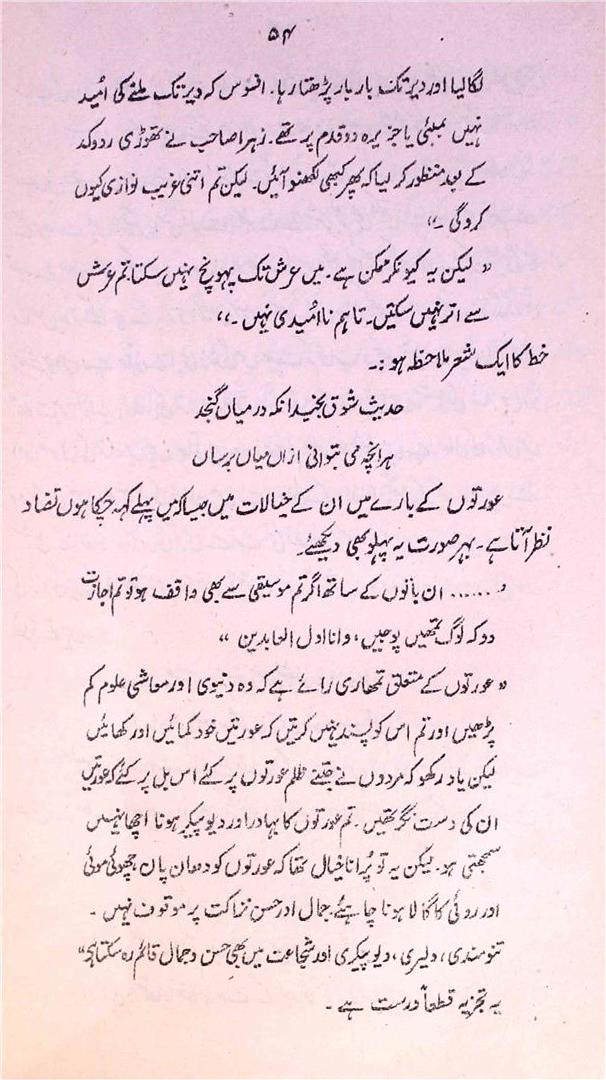 ۵۴
لگالیا اور دیر تک بار بار پڑھتا رہا۔ افسوس کہ دیر تک ملنے کی امید
نہیں بمبئی یا جزیرہ دو قدم پر تھے۔ زہرا صاحب نے تھوڑی ردوکد
کے بعد منظور کر لیا کہ پھر کبھی لکھنؤ آئیں۔ لیکن تم اتنی غریب نوازی کیوں
کرو گی۔"
" لیکن یہ کیونکر ممکن ہے۔ میں عرش تک پہونچ نہیں سکتا تم عرش
سے اتر نہیں سکتیں۔ تاہم نا امیدی نہیں۔"
خط کا ایک شعر ملاحظہ ہو:۔
حدیث شوق بخیدانکہ درمیاں گنجد
ہر انچہ می بتوانی ازاں میاں برساں
عورتوں کے بارے میں ان کے خیالات میں جیسا کہ میں پہلے کہہ چکا ہوں تضاد
نظر آتا ہے۔ بہر صورت یہ پہلو بھی دیکھئے۔
"...... ان باتوں کے ساتھ اگر تم موسیقی سے بھی واقف ہو تو تم اجازت
دو کہ لوگ تمھیں پوجیں، وانا اول العابدین "
" عورتوں کے متعلق تمھاری رائے ہے کہ وہ دنیوی اور معاشی علوم کم
پڑھیں اور تم اس کو پسند نہیں کرتیں کہ عورتیں خود کمائیں اور کھائیں
لیکن یاد رکھو کہ مردوں نے جتنے ظلم عورتوں پر کئے اس بل پر کئے کہ عورتیں
ان کی دست نگر تھیں۔ تم عورتوں کا بہادر اور دیو پیکر ہونا اچھا نہیں
سمجھتی ہو۔ لیکن یہ تو پُرانا خیال تھا کہ عورتوں کو دھان پان، چھوئی موئی
اور روئی کا گالا ہونا چاہئے، جمال اور حسن نزاکت پر موقوف نہیں۔
تنومندی، دلیری، دیو پیکری اور شجاعت میں بھی حسن و جمال قائم رہ سکتا ہے"
یہ تجزیہ قطعاً درست ہے۔